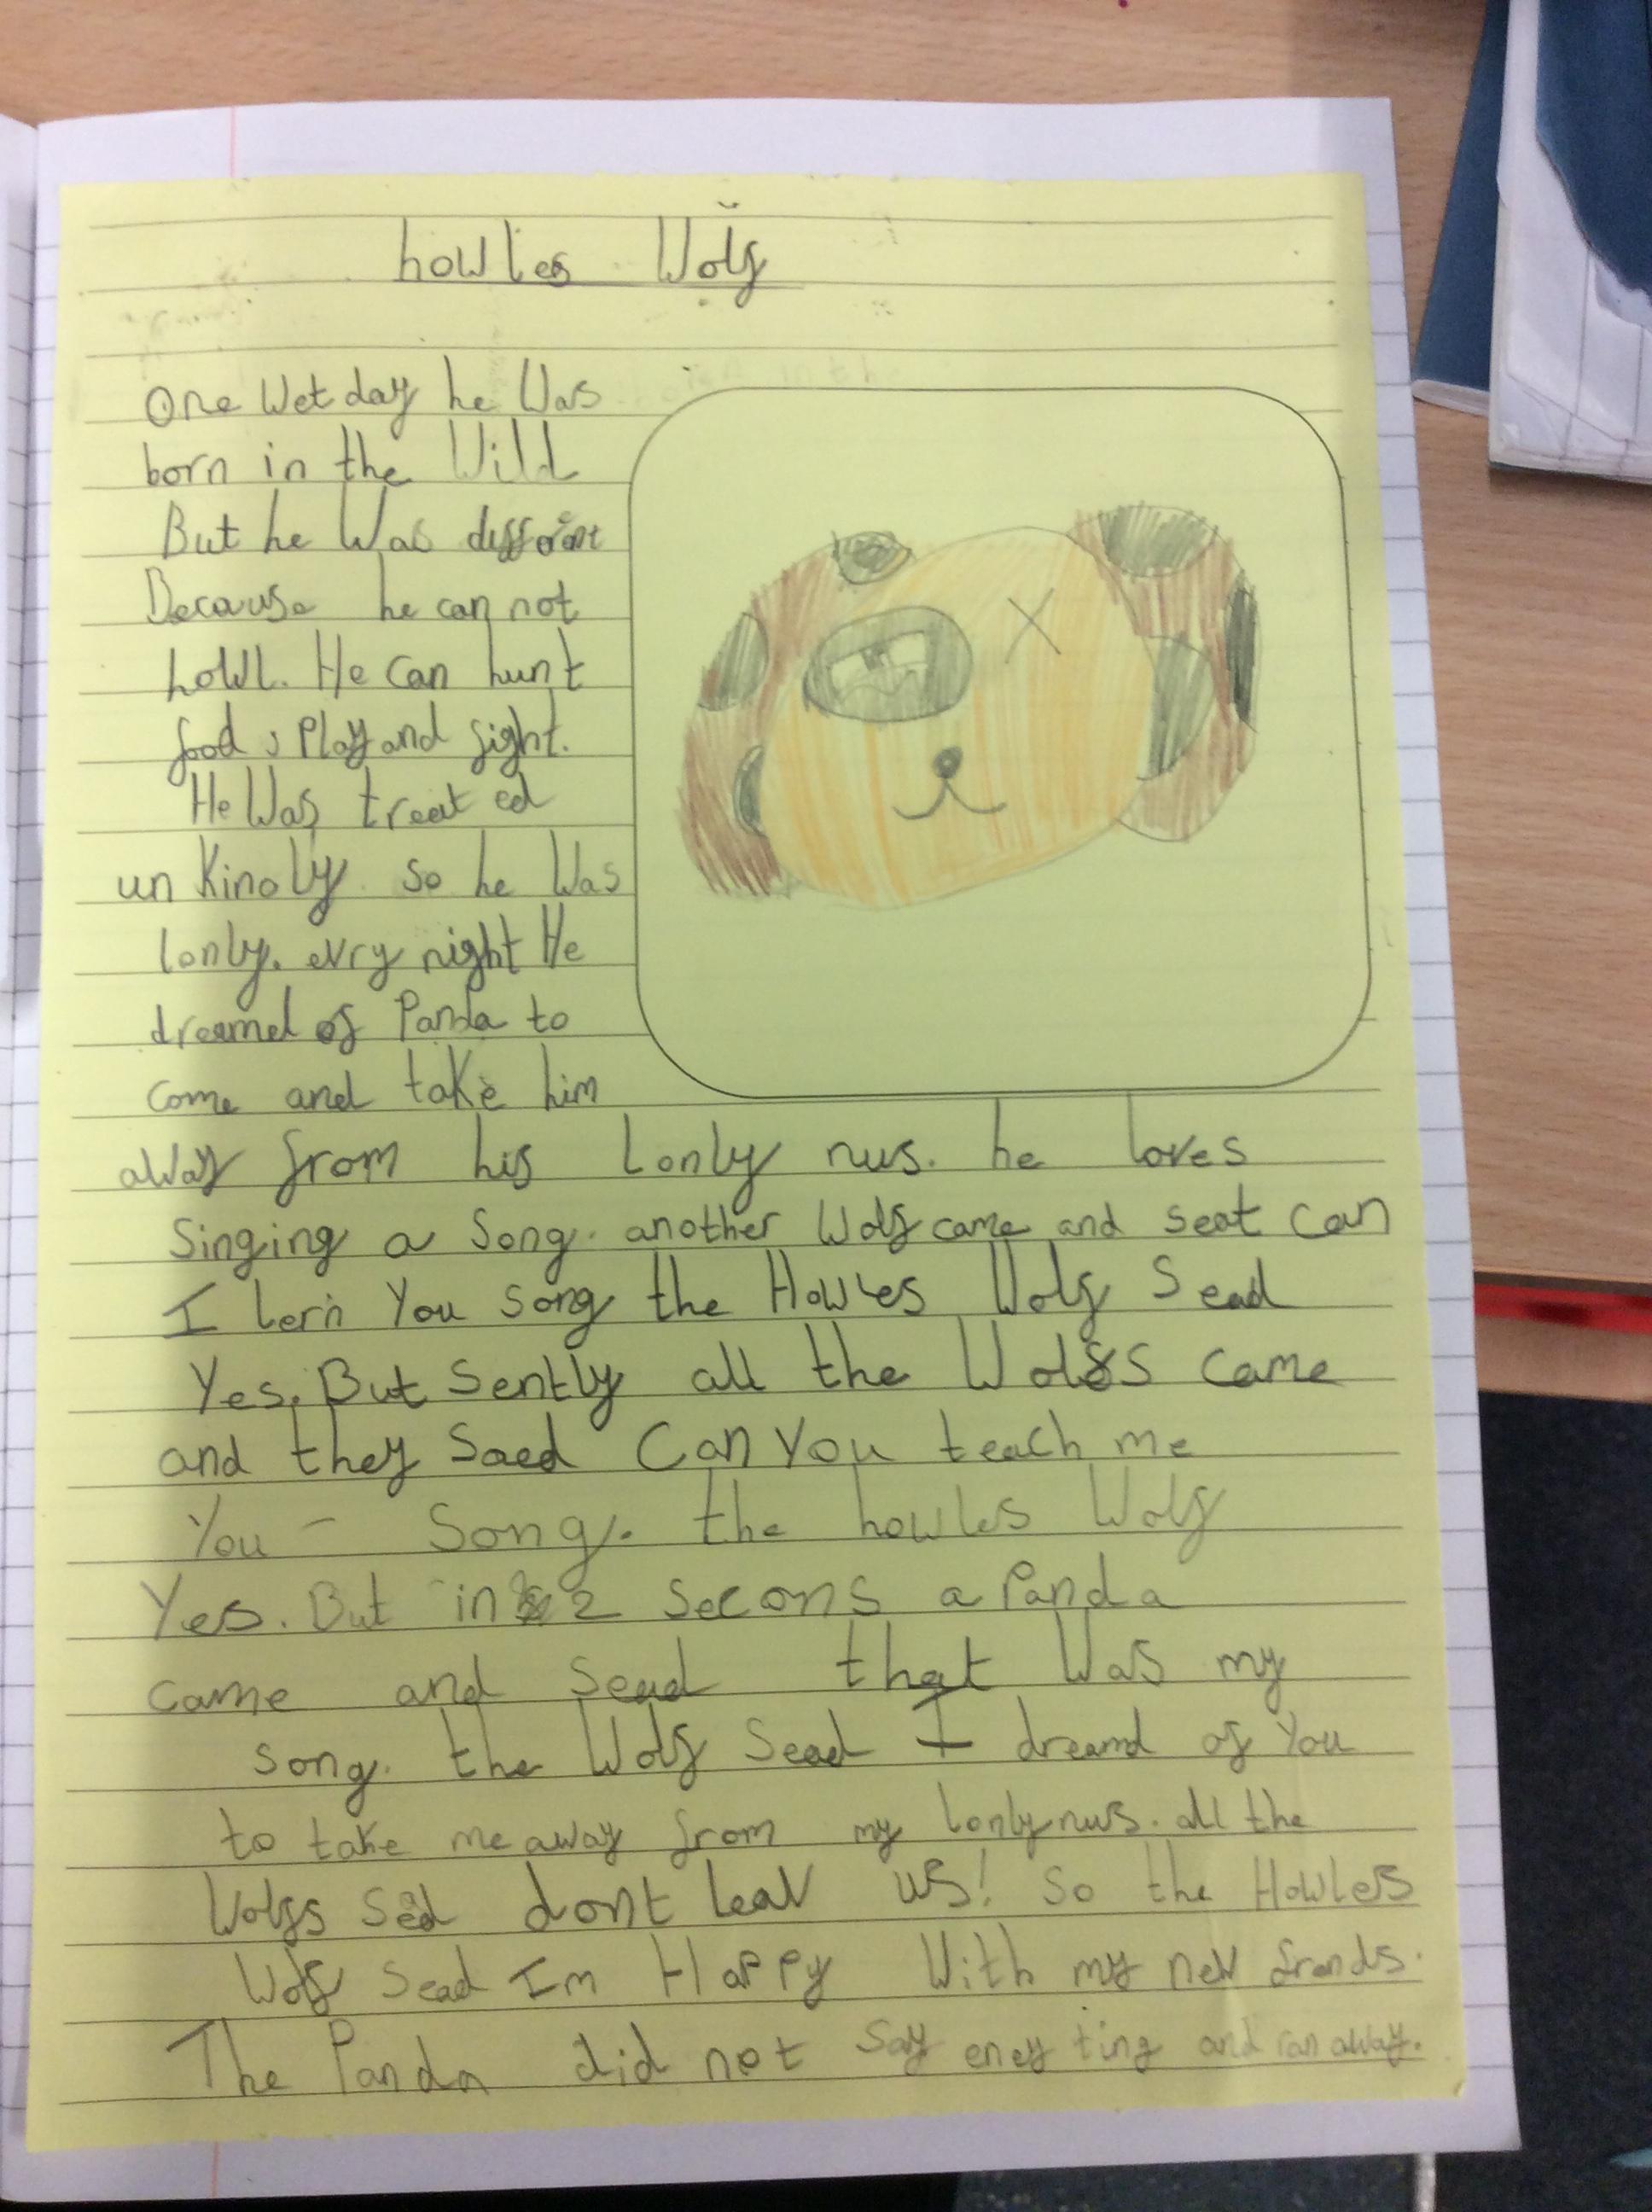 howles Wolf
One Wet day he Was
born in the Wild
But he Was
Because he can not
howl. He can hunt
food, Play and fight.
He Was treat ed
un Kindly so he Was
lonly. evry night He
dreamd of Panda to
come and take him
away from his Lonly nus. he loves
Singing a Song. another Wolf came and seat can
I lern You song the Howles Wolf Sead
Yes. But Sently all the Wolfs came
and they Saed Can You teach me
You - Song. the howles Wolf
Yes. But in 2 Secons a Panda
came and Sead that Was my
song. the Wolf Sead I dreamd of You
to take me away from my lonlynus. all the
Wolfs Sed dont leav us! So the Howles
Wolf Sead Im Happy With my new frends.
The Panda did not Say eney ting and ran away.